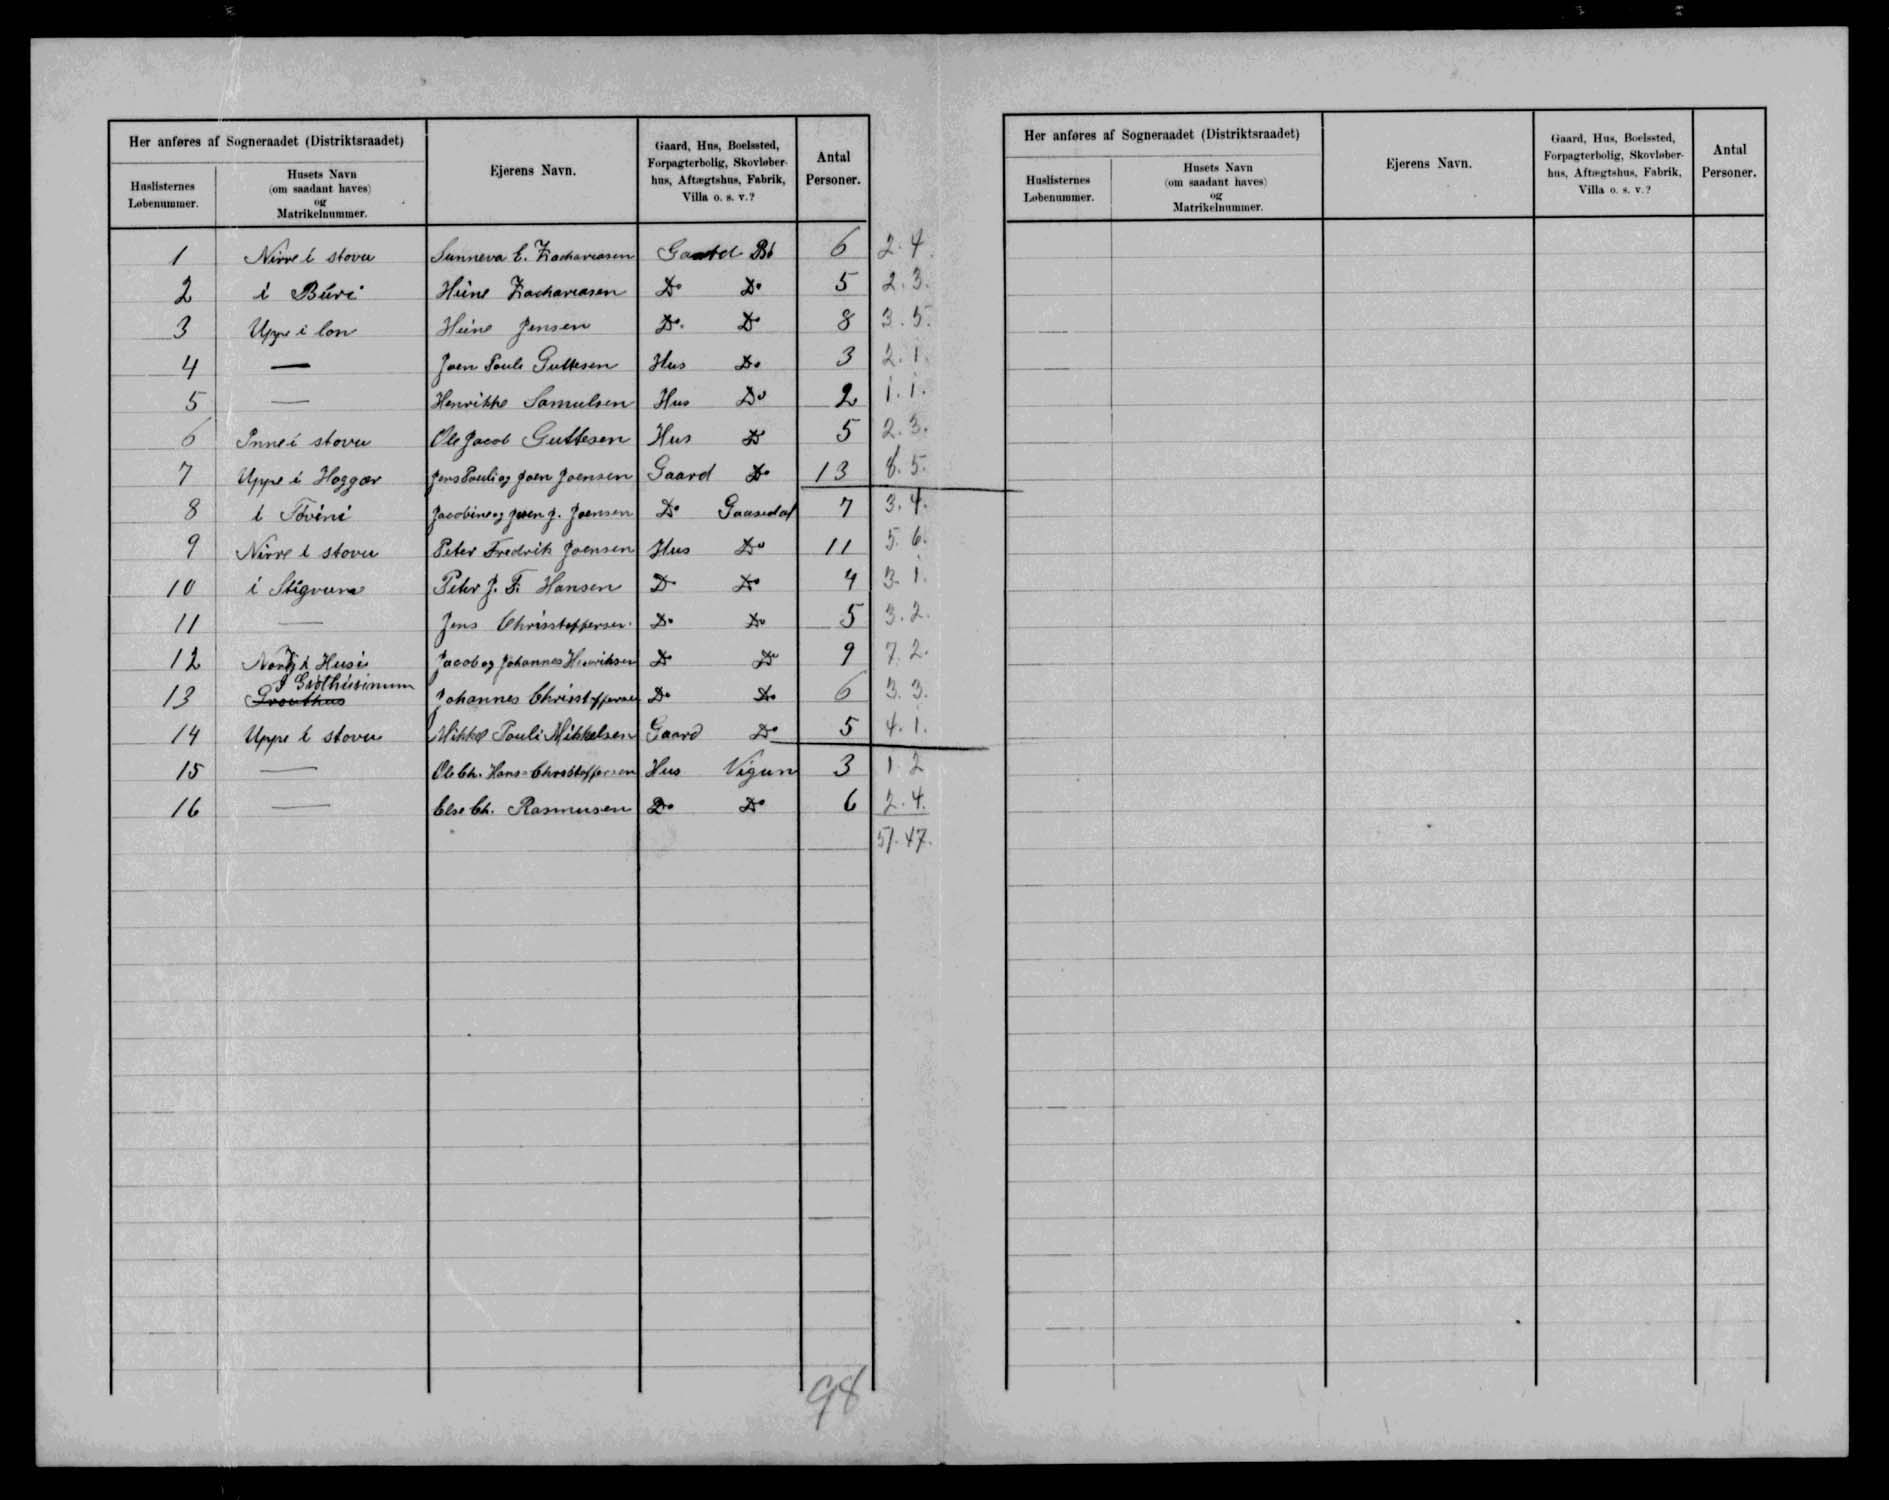 Her anføres af Sogneraadet (Distriktsraadet)
Huslisternes Løbenummer.
Husets Navn (om saadant haves) og Matrikelnummer.
Ejerens Navn.
Gaard, Hus, Boelssted, Forpagterbolig, Skovløberhus, Aftægtshus, Fabrik, Villa o. s. v.?
Antal Personer.
1 Nirre í stovu Sunneva E. Zachariasen Gaard Bö 6 2. 4.
2 í Búri Heine Zachariasen Do Do 5 2. 3.
3 Uppe i lon Heine Jensen Do. Do 8 3. 5.
4 — Joen Pauli Guttesen Hus Do 3 2. 1.
5 — Henrikke Samulsen Hus Do 2 1. 1.
6 Inne í stovu Ole Jacob Guttesen Hus Do 5 2. 3.
7 Uppe í Hoggar Jens Pauli og Joen Joensen Gaard Do 13 8. 5.
8 í Tövini Jacobine og Joen J. Joensen Do Gaasedal 7 3. 4.
9 Nirre í stovu Peter Fredrik Joensen Hus Do 11 5. 6.
10 í Stigvum Peter J. F. Hansen Do Do 4 3. 1.
11 — Jens Christoffersen Do Do 5 3. 2.
12 Husi Jacob og Johannes Henriksen Do Do 9 7. 2.
13 I Grothúsinum Johannes Christoffersen Do Do 6 3. 3.
14 Uppe í stovu Mikkel Pauli Mikkelsen Gaard Do 5 4. 1.
15 — Ole Ch. Hans-Christoffersen Hus Vigun 3 1. 2
16 — Else Ch. Rasmusen Do Do 6 2. 4.
51. 47.
98
Her anføres af Sogneraadet (Distriktsraadet)
Huslisternes Løbenummer.
Husets Navn (om saadant haves) og Matrikelnummer.
Ejerens Navn.
Gaard, Hus, Boelssted, Forpagterbolig, Skovløberhus, Aftægtshus, Fabrik, Villa o. s. v.?
Antal Personer.